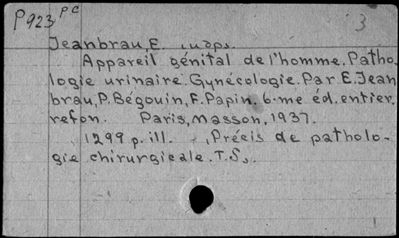 P923 PC 3
Jeanbrau, E. и др.
Appareil génital de l'homme. Patho-
logie urinaire. Gynécologie. Par E. Jean
brau, P. Bégouin, F. Papin. 6-me éd. entier.
refon. Paris, Masson, 1937.
1299 p. ill. (Précis de patholo-
gie chirurgicale. T. 5).